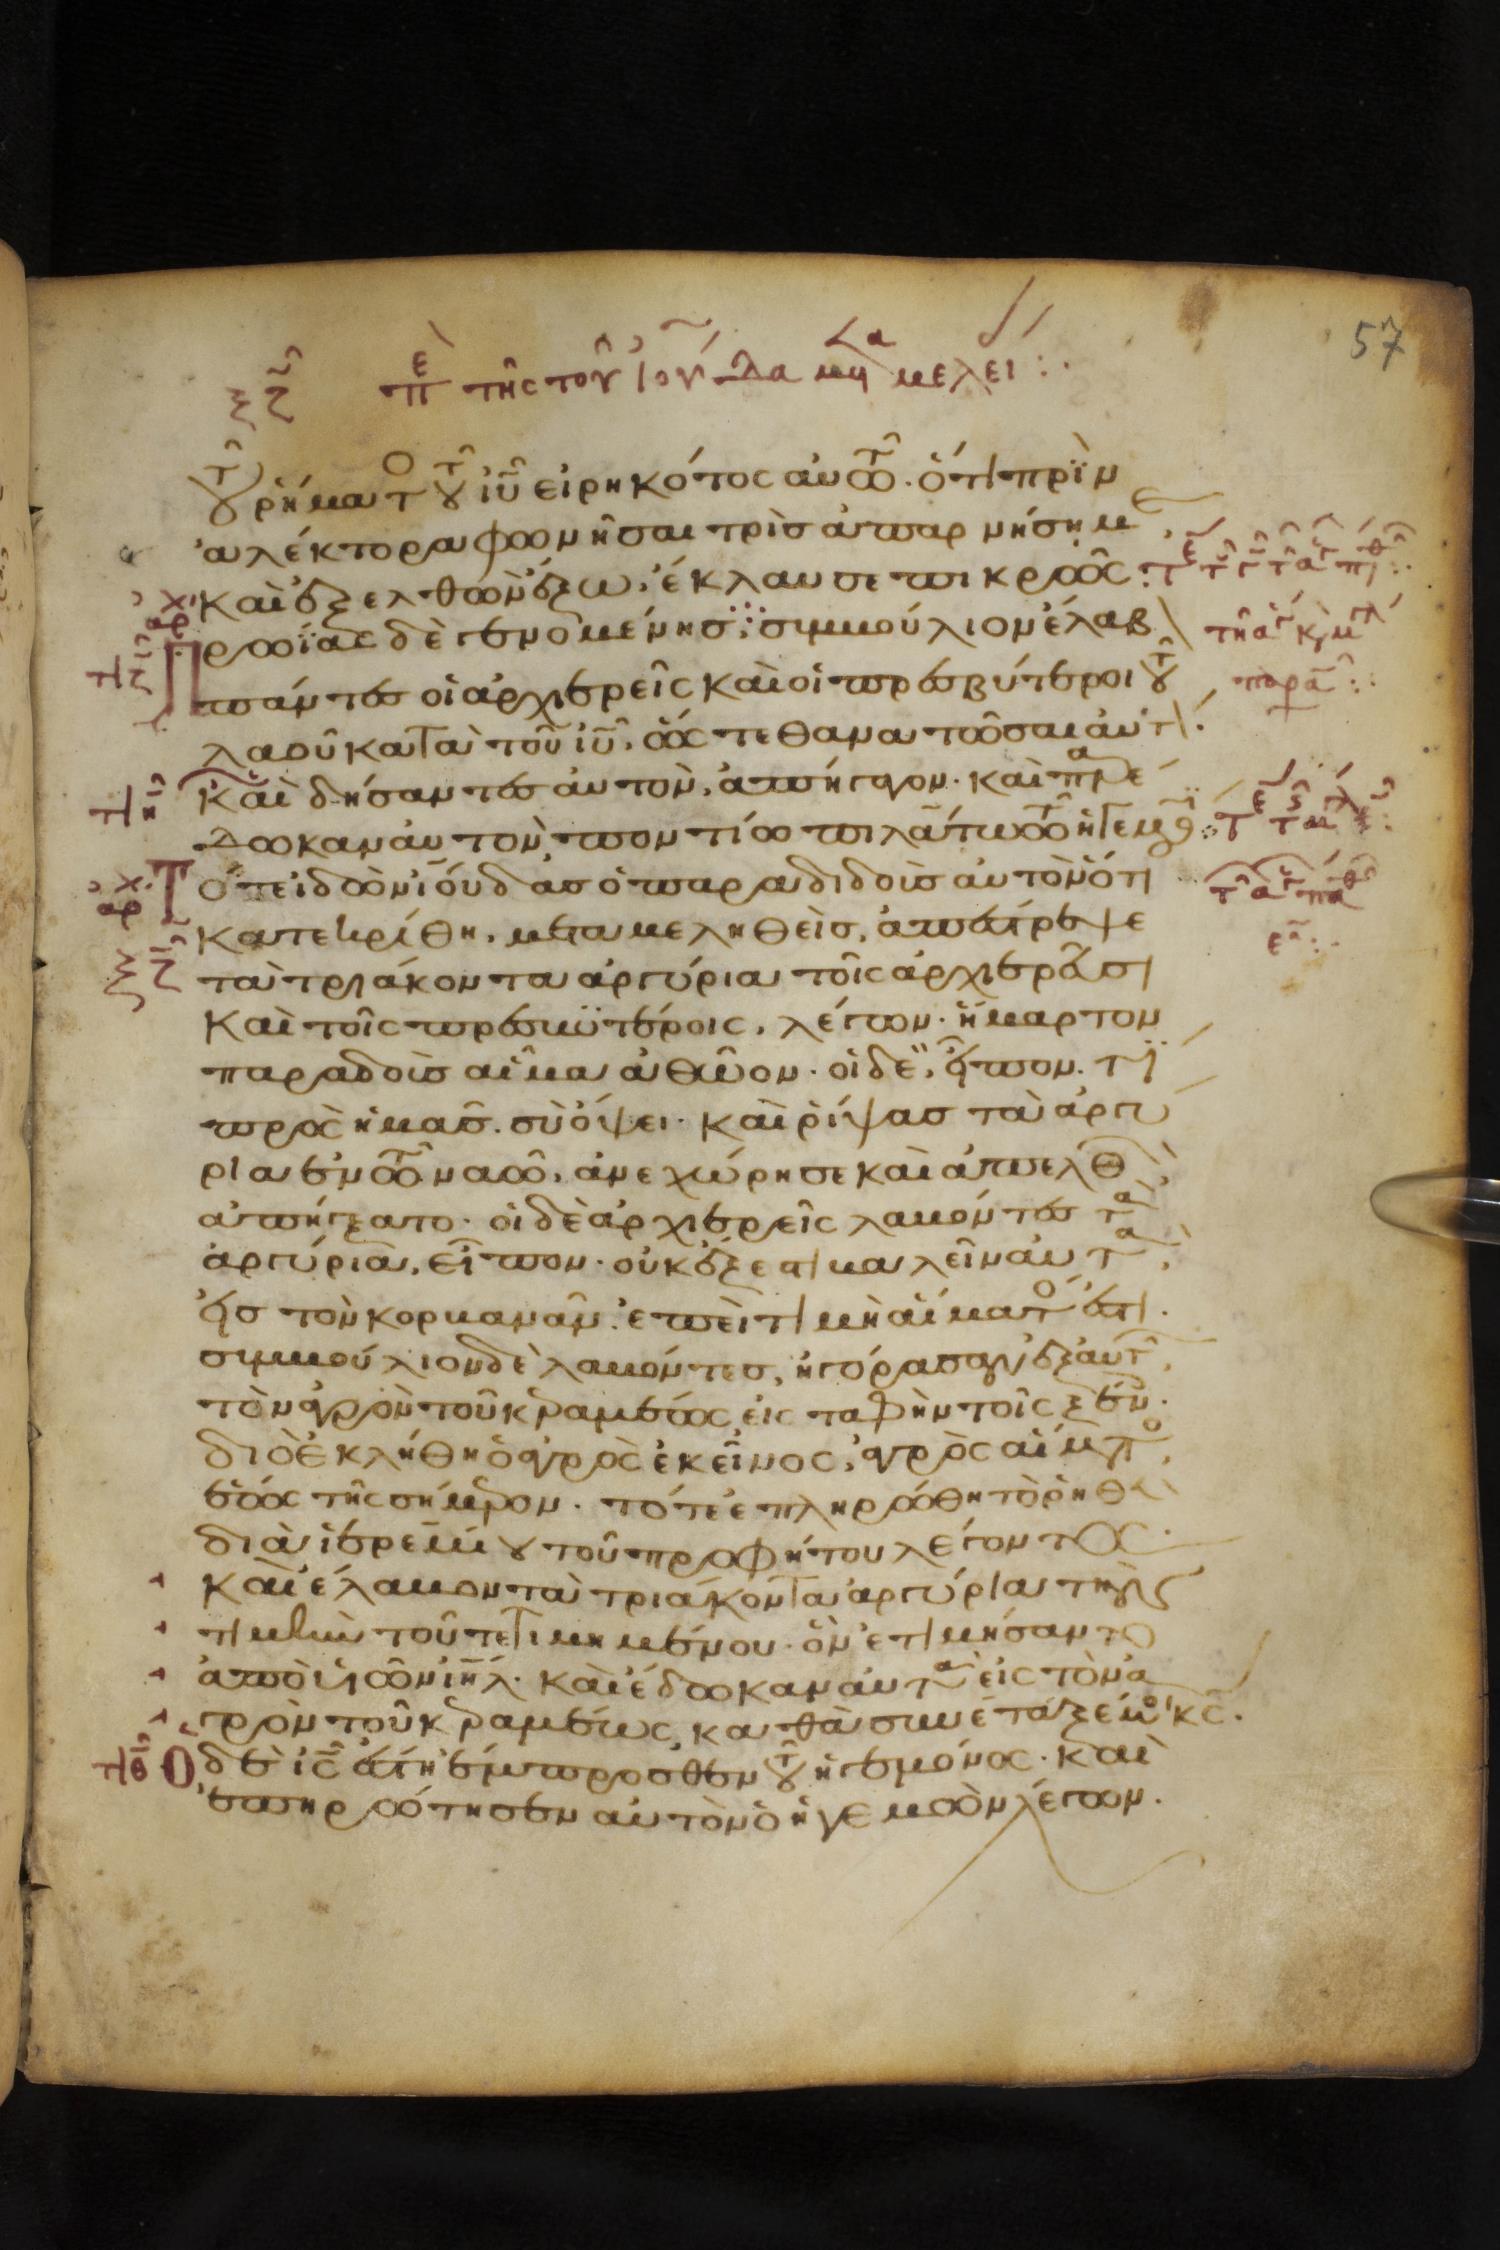 57
ξζ πε της του ἰούδα μεταμελεί:·
τοῦ ῥήματο τοῦ ἰῦ εἰρηκότος αὐτῶ. ὅτι πρὶν
ἀλέκτορα φωνῆσαι τρὶσ ἀπαρνήσῃ με,
καὶ ἐξελθὼν ἔξω, ἔκλαυσε πικρῶς:
Πρωΐας δὲ γενομένησ, συμβούλιον ἔλαβ
παντεσ οἱ ἀρχιερεῖς καὶ οἱ πρεσβύτεροι τοῦ
λαοῦ κατὰ τοῦ ἰῦ, ὥς τε θανατῶσαι αὐτ.
καὶ δήσαντεσ αὐτὸν, ἀπήγαγον. καὶ παρέ
δωκαν αὐτὸν ποντίω πιλάτω τῶ ἡγεμόνι:
Τότε ἰδὼν ἰούδασ ὁ παραδιδοὺσ αὐτὸν ὅτι
κατεκρίθη, μεταμεληθεὶσ, ἀπέστρεψε
τὰ τριάκοντα ἀργύρια τοῖς ἀρχιερεῦσι
καὶ τοῖς πρεσβυτέροις, λέγων. ἥμαρτον
παραδοὺσ αἷμα ἀθῶον. οἱ δὲ, εἶπον. τί
πρὸς ἡμᾶσ. σὺ ὄψει. καὶ ῥίψασ τὰ ἀργύ
ρια ἐν τῶ ναῶ, ἀνεχώρησε καὶ ἀπελθ
ἀπήγξατο. οἱ δὲ ἀρχιερεῖς λαβόντεσ τα
ἀργύρια, εἶπον. οὐκ ἔξεστι βαλεῖν αὐτα,
εἰσ τὸν κορβανᾶν. ἐπεὶ τιμὴ αἵματο ἐστι.
συμβούλιον δὲ λαβόντεσ, ἠγόρασαν ἐξ αὐτ,
τὸν ἀγρὸν τοῦ κεραμέως, εἰς ταφὴν τοῖς ξέν.
διὸ ἐκλήθη ὁ ἀγρὸς ἐκεῖνος, ἀγρὸς αἵματο,
ἕως τῆς σήμερον. τότε ἐπληρώθη τὸ ῥηθὲ
διὰ ἰερεμίου τοῦ προφήτου λέγοντος.
καὶ ἔλαβον τὰ τριάκοντα ἀργύρια τὴν
τιμὴν τοῦ τετιμημένου. ὃν ἐτιμήσαντο
ἀπὸ υἱῶν ιηλ. καὶ ἔδωκαν αὐτα εἰς τὸν ἀ
γρὸν τοῦ κεραμέως, καθὰ συνέταξέ μοι κς.
Ὁ δὲ ις ἔστη ἔμπροσθεν τοῦ ἡγεμόνος. καὶ
ἐπηρώτησεν αὐτὸν ὁ ἡγεμὼν λέγων.